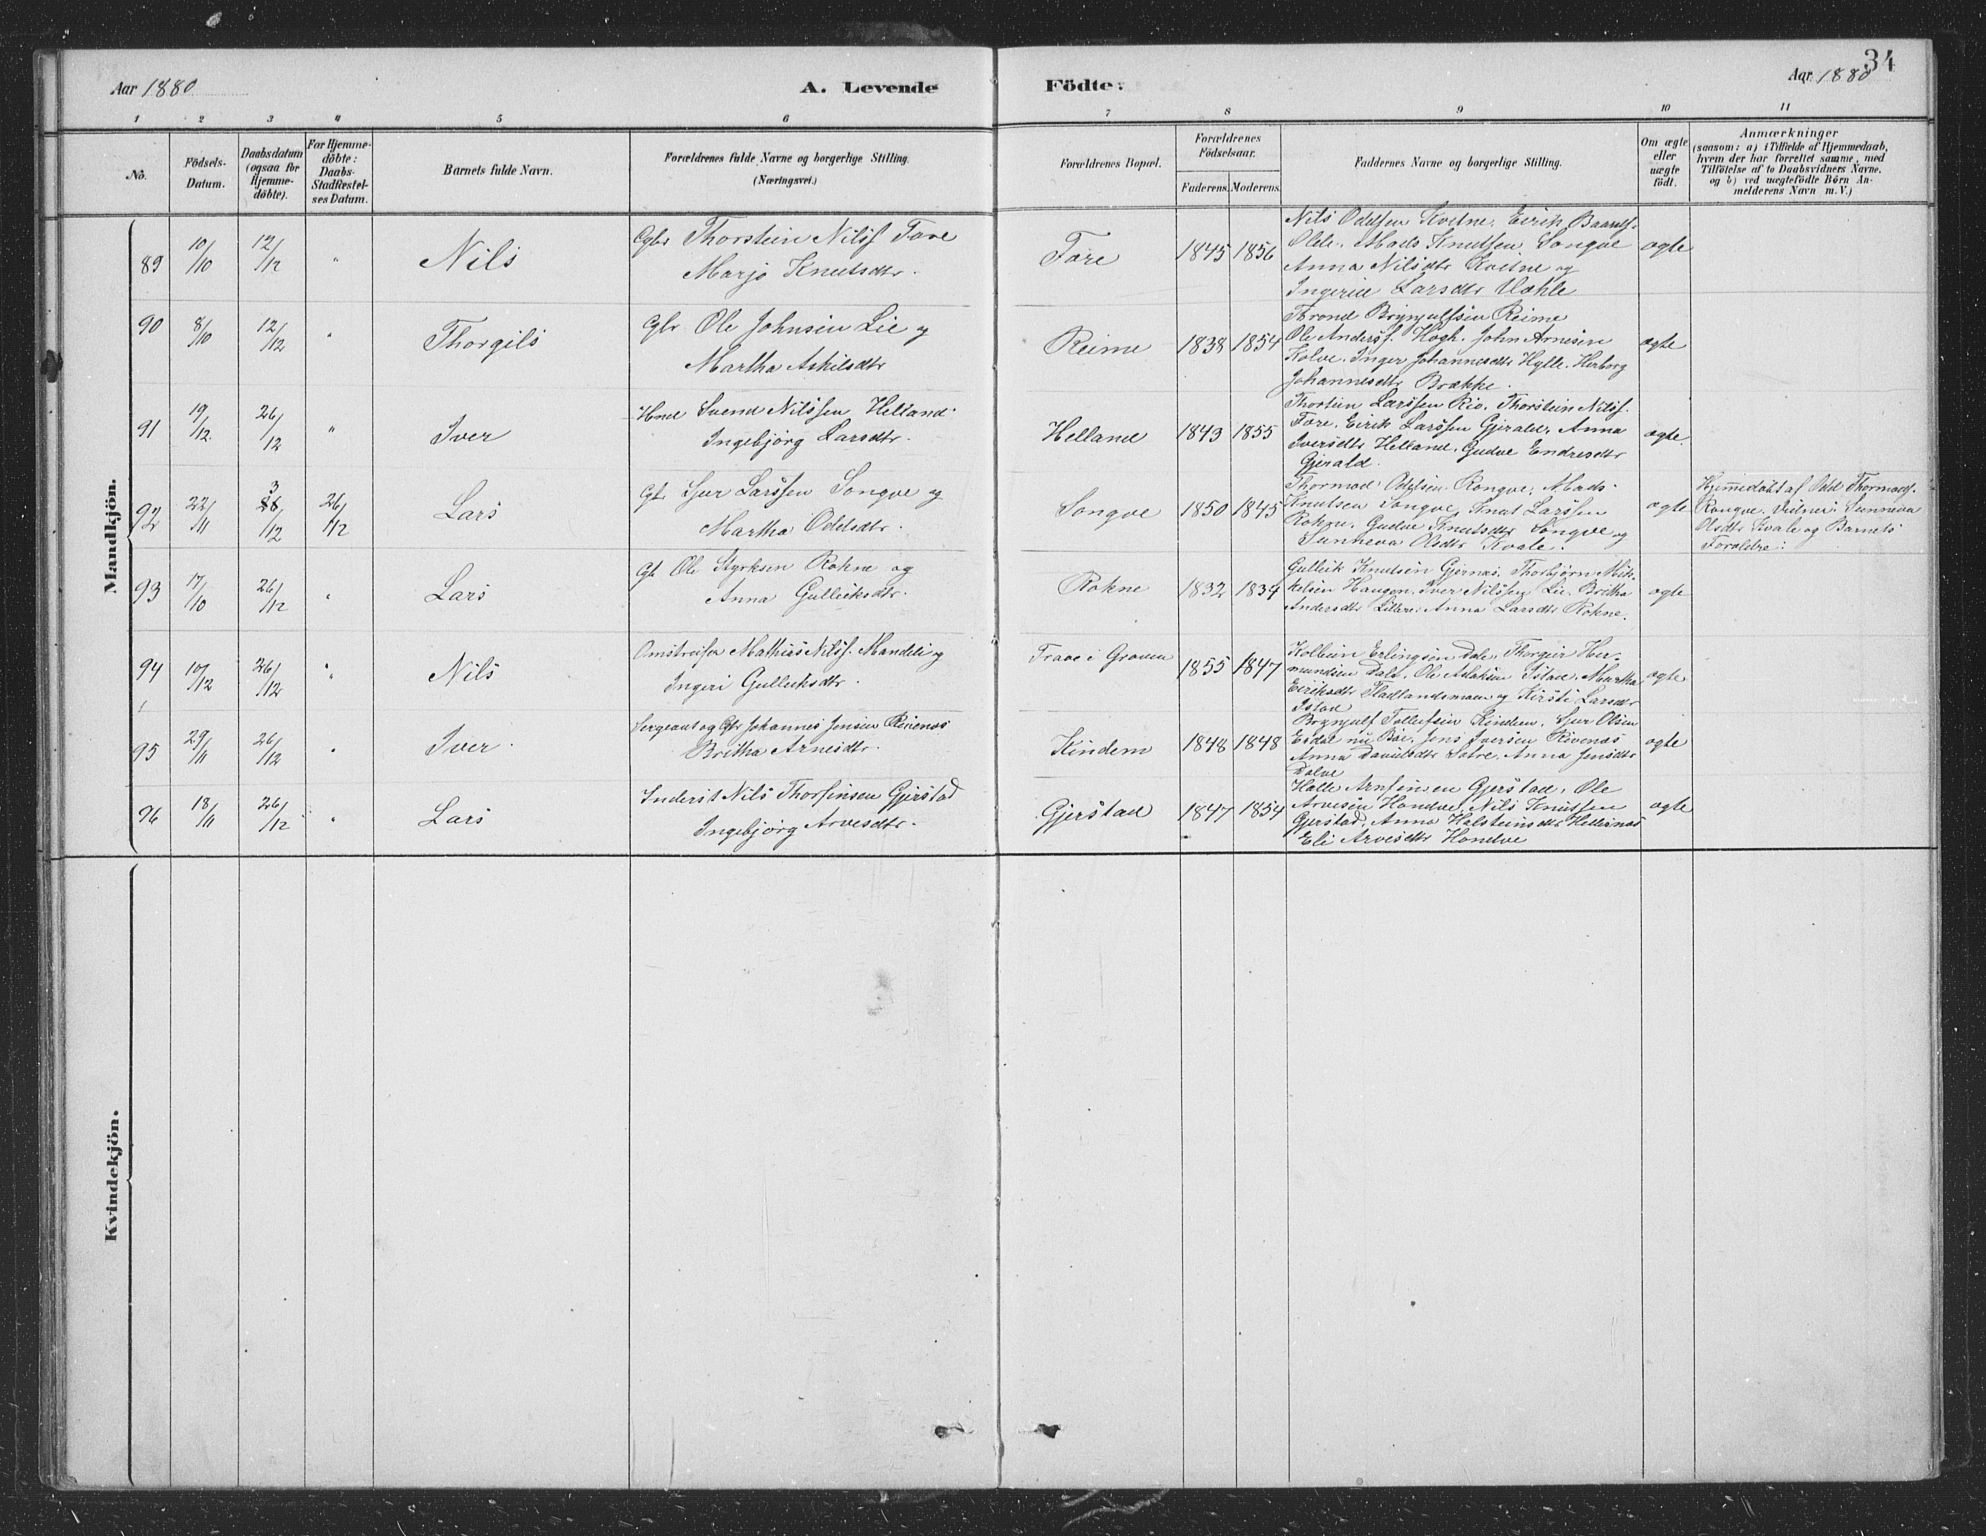 34
Aar 1880
A. Levende
Födte.
Aar 1880
1 2 3 4 5 6 7 8 9 10 11
No.
Födsels-
Datum.
Daabsdatum
(ogsaa for
Hjemme-
döbte).
For Hjemme-
döbte:
Daabs-
Stadfæstel-
ses Datum.
Barnets fulde Navn.
Forældrenes fulde Navne og borgerlige Stilling.
(Næringsvei.)
Forældrenes Bopæl.
Forældrenes
Födselsaar.
Faderens. Moderens.
Faddernes Navne og borgerlige Stilling.
Om ægte
eller
uægte
födt.
Anmærkninger
(saasom: a) i Tilfælde af Hjemmedaab,
hvem der har forrettet samme, med
Tilföielse af to Daabsvidners Navne,
og b) ved uægtefödte Börn An-
melderens Navn m. V.)
Mandkjön.
89 10/10 12/12 " Nils
Gbr Thorstein Nilsf. Fære
Marjo Knutsdtr.
Føre 1845 1856
Nils Oddsen Kvitne, Eirik
Mads Knutsen Songve
Anna Nilsdtr Kvitne og
Larsdtr
ægte
90 8/10 12/12 " Thorgils
Gbr Ole Johnsen Lie og
Martha Askilsdtr
Reime 1838 1854
Trond Brynjulfsen Reime
Ole Andersf. Høgh. John Arnesen
Kolve. Inger Johannesdtr Hylle. Herborg
Johannesdtr Brække.
ægte
91 19/12. 26/12 " Iver
Hmd Svend Nilssen Helland.
Ingebjörg Larsdtr.
Helland 1843 1855
Larssen Rio, Thorstein Nilsf.
Føre, Eirik Larssen Gjerald, Anna
Iversdtr Helland, Gudve Endresdtr
Gjerald.
ægte.
92 22/11 3/12 26/12 Lars
Gbr Sjur Larssen Songve og
Martha Oddsdtr.
Songve 1850 1845
Thormod Oddsen Rongve, Mads
Knutsen Songve, Knut Larssen
Rokne. Gudve Knutsdtr Songve og
Sunneva Olsdtr Kvale.
ægte
Hjemmedøbt af Odd Thormodf.
Rongve. Vidner: Sunneva
Olsdtr Kvale og Barnets
Forældre.
93 17/10 26/12 " Lars
Gbr Ole Styrksen Rokne og
Anna Gulliksdtr.
Rokne 1832 1834
Gullik Knutsen Gjernæs, Thorbjörn Mik-
kelsen Haugen, Iver Nilssen Lie. Britha
Andersdtr Anna Larsdtr Rokne.
ægte
94 10/12 26/12 " Nils
Omstreifer Mathias Nilsf. og
Ingeri Gulliksdtr.
i Groven 1855 1847
Kolbein Erlingsen Dale, Thorgeir Her-
mundsen Dale, Ole Istad. Martha
Eiriksdtr og Kirsti Larsdtr
Istad
ægte
95 29/11 26/12 " Iver.
Sergeant og Gbr Johannes Jensen Rivenæs
Britha Arnesdtr.
Kindem 1848 1848
Brynjulf Tollefsen Kindem. Sjur Olsen
nu Bøe, Jens Iversen Rivenæs
Anna Davidsdtr Sætre. Anna Jensdtr
ægte
96 18/11 26/12 " Lars
Inderst Nils Thorfinsen Gjerstad
Ingebjörg Arvesdtr.
Gjerstad 1847 1854
Gjerstad, Ole
Arvesen Hondve, Nils Knutsen
Gjerstad, Anna Halsteinsdtr Hellesnæs
Eli Arvesdtr Hondve
ægte
Kvindekjön.